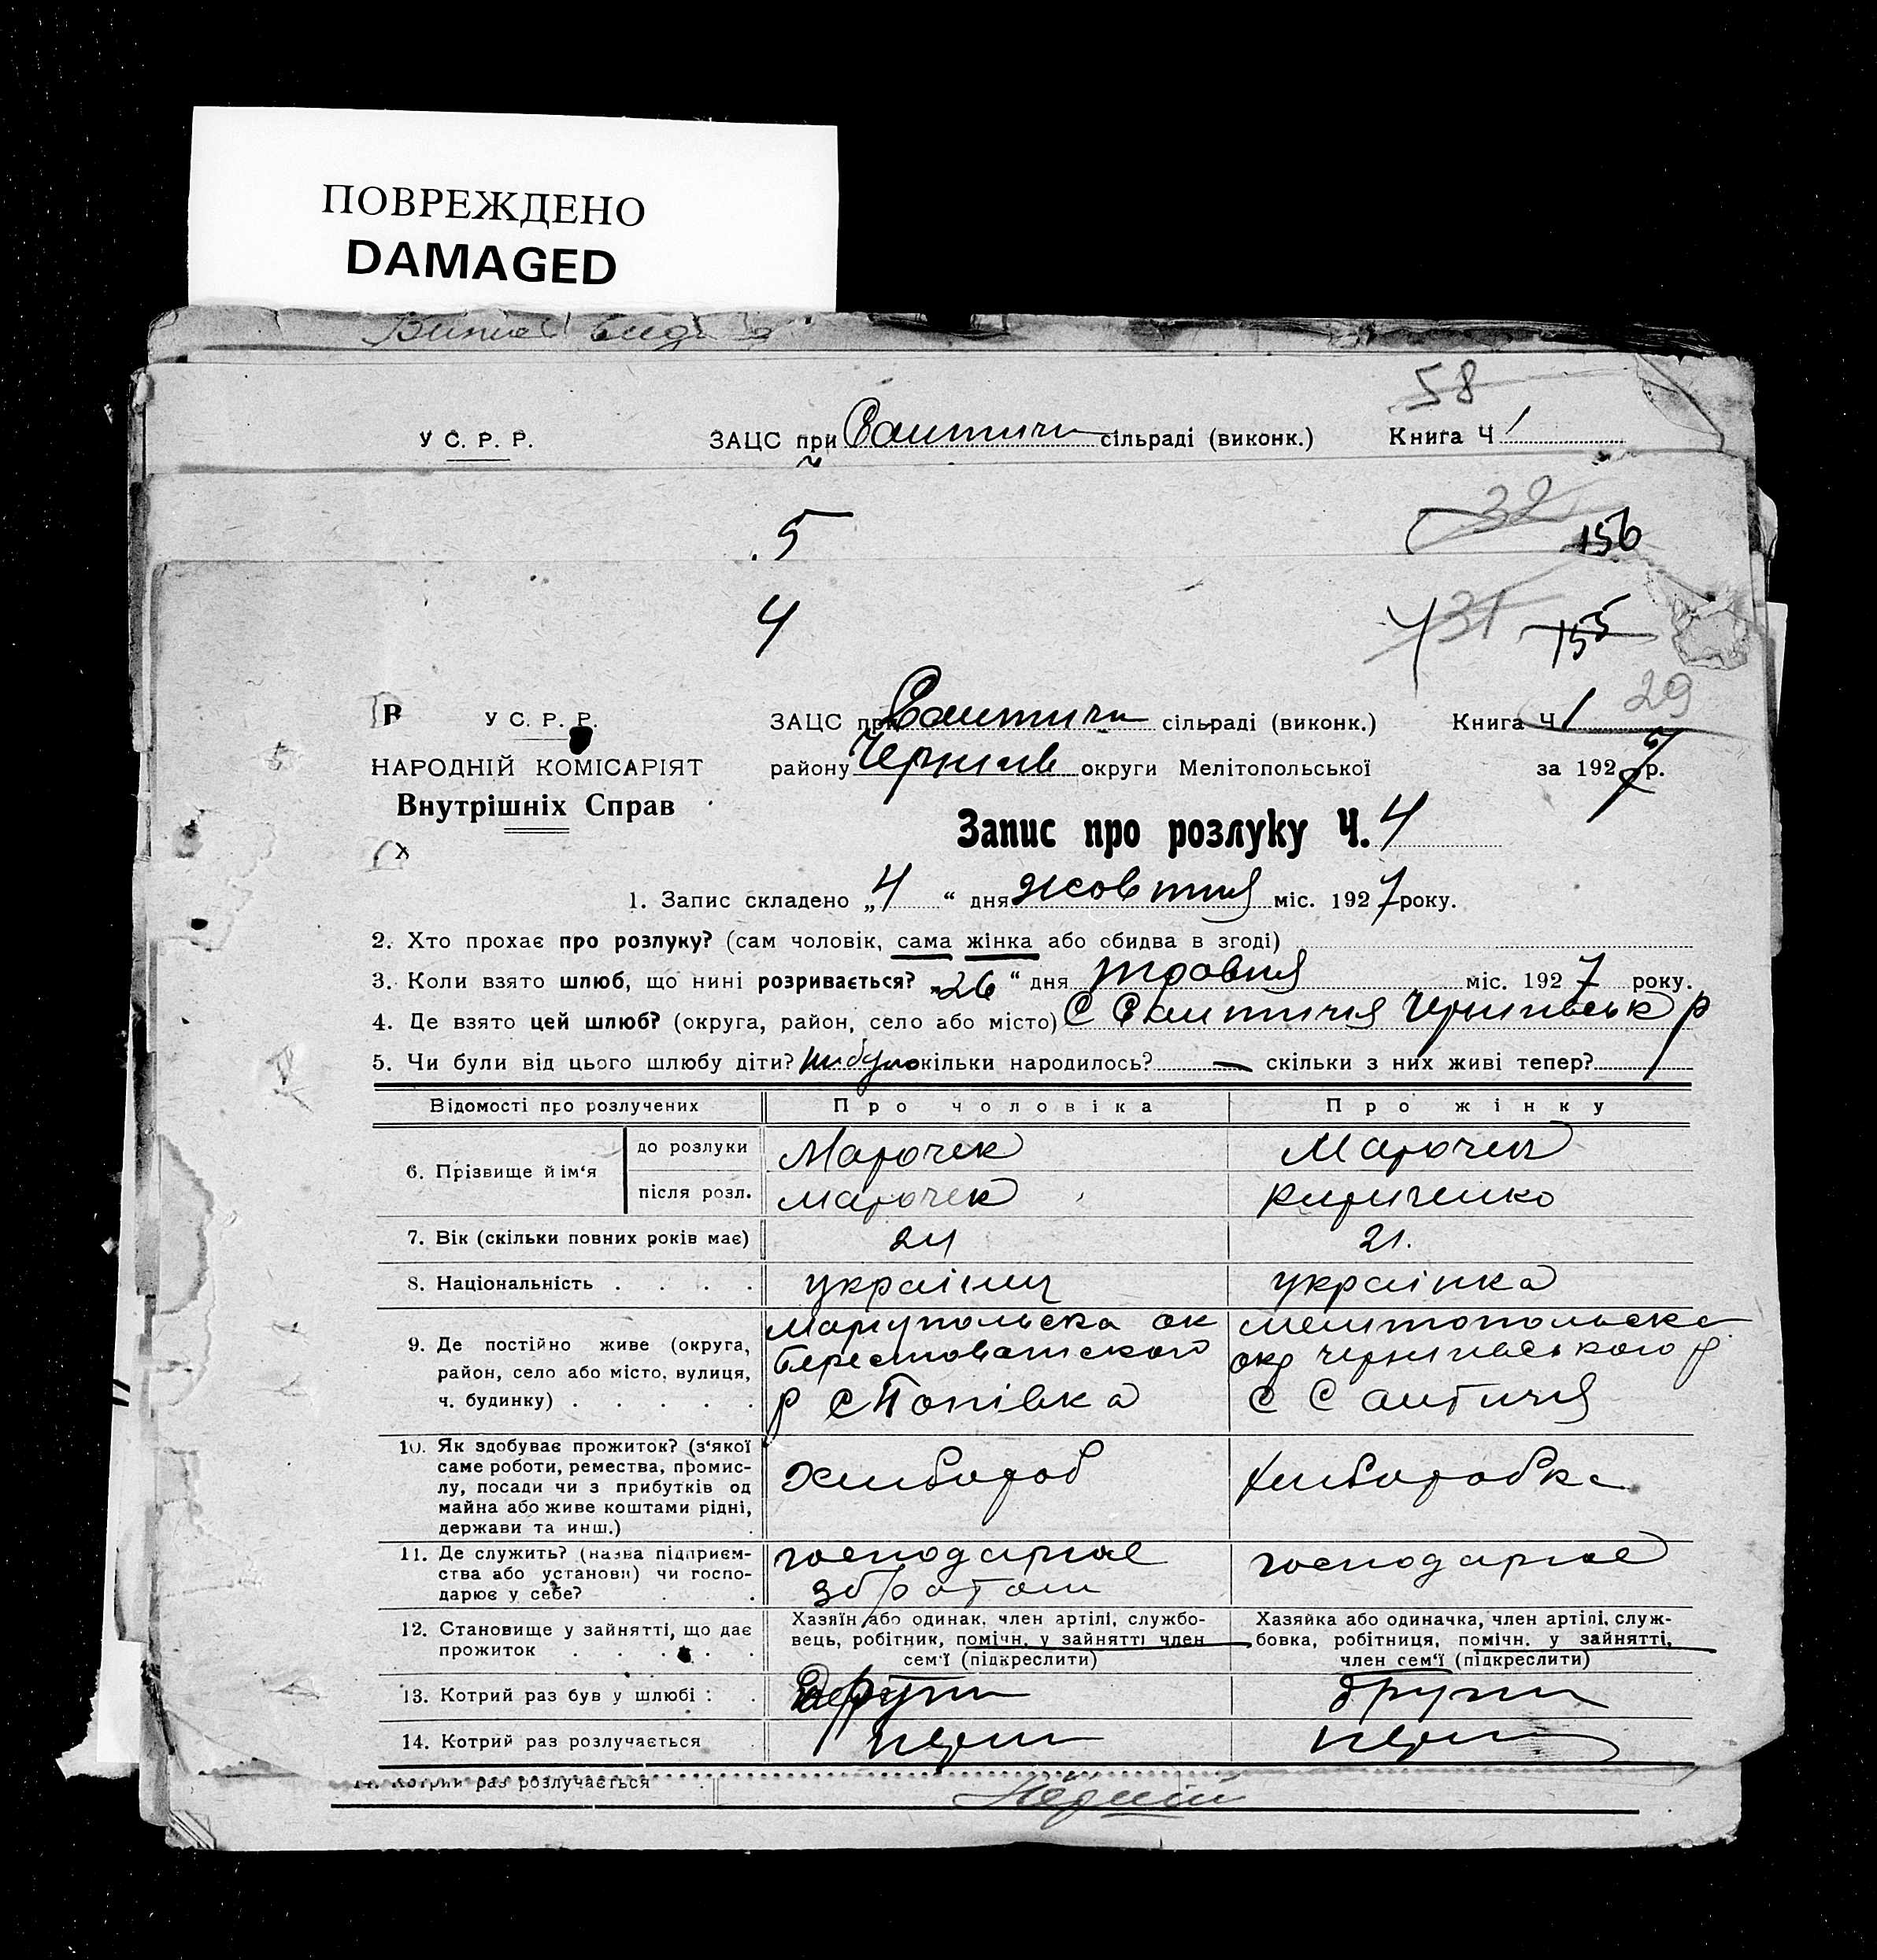 ПОВРЕЖДЕНО
DAMAGED
58
У С. Р. Р. ЗАЦС при сільраді (виконк.) Книга Ч 1
5 32 156
4 31 155
29
В У С. Р. Р. ЗАЦС при сільраді (виконк.) Книга Ч 1
НАРОДНІЙ КОМІСАРІЯТ району Черниг округи Мелітопольської за 1927 р.
Внутрішніх Справ
Запис про розлуку Ч. 4
1. Запис складено „4“ дня жовтня міс. 1927 року.
2. Хто прохає про розлуку? (сам чоловік, сама жінка або обидва в згоді)
3. Коли взято шлюб, що нині розривається? „26“ дня травня міс. 1927 року.
4. Де взято цей шлюб? (округа, район, село або місто) С Салтичія Чернигівськ р
5. Чи були від цього шлюбу діти? ни було скільки народилось? — скільки з них живі тепер?
Відомості про розлучених Про чоловіка Про жінку
6. Прізвище й ім‘я до розлуки Марочек Марочек
після розл. Марочек Кириченко
7. Вік (скільки повних років має) 24 21.
8. Національність українец українка
9. Де постійно живе (округа, район, село або місто, вулиця, ч. будинку) Маріупольска ок Мелитопольска
Берестоватского окр Чернигівського р
р с Попівка с Салтичія
10. Як здобуває прожиток? (з‘якої саме роботи, ремества, промислу, посади чи з прибутків од майна або живе коштами рідні, держави та инш.) Хлибороб хлиборобка
11. Де служить? (назва підприємства або установи) чи господарює у себе? господарює господарює
з братом
12. Становище у зайнятті, що дає прожиток Хазяїн або одинак, член артілі, службовець, робітник, помічн. у зайнятті член сем‘ї (підкреслити) Хазяйка або одиначка, член артілі, службовка, робітниця, помічн. у зайнятті, член сем‘ї (підкреслити)
13. Котрий раз був у шлюбі: други други
14. Котрий раз розлучається перши перши
14. Котрий раз розлучається Перший